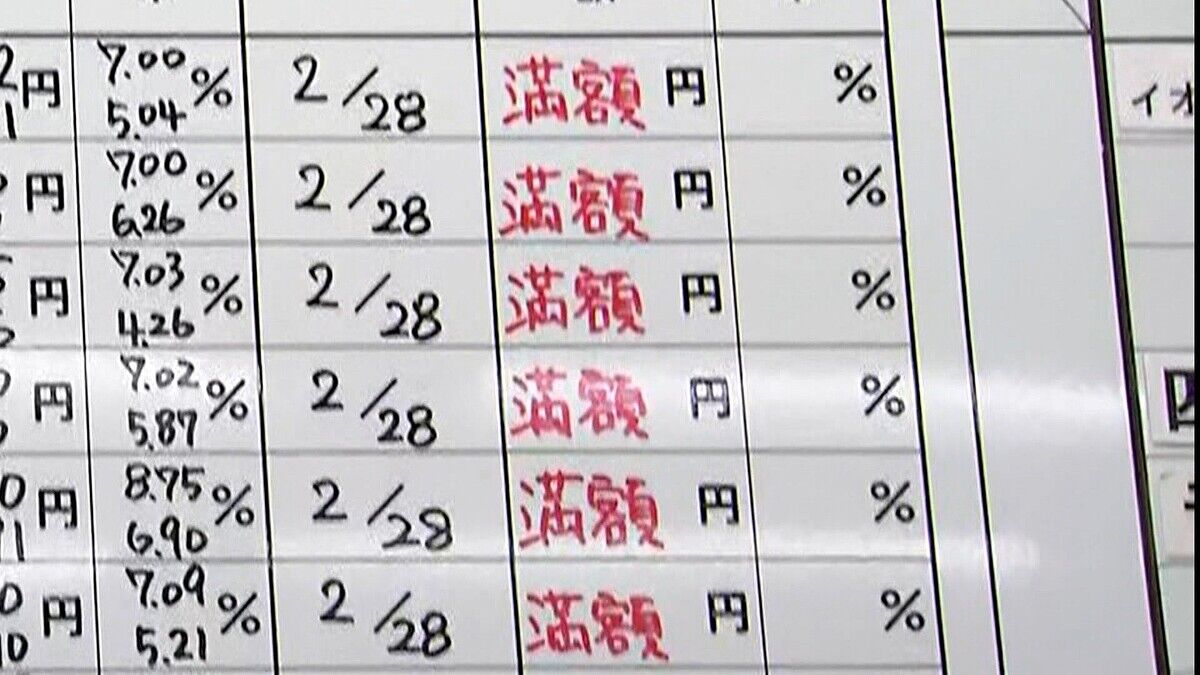 円 7.00 % 2/28 満額 円 %
5.04
円 7.00 % 2/28 満額 円 %
6.26
円 7.03 % 2/28 満額 円 %
4.26
円 7.02 % 2/28 満額 円 %
5.87
円 8.75 % 2/28 満額 円 %
6.90
円 7.09 % 2/28 満額 円 %
5.21
イオ